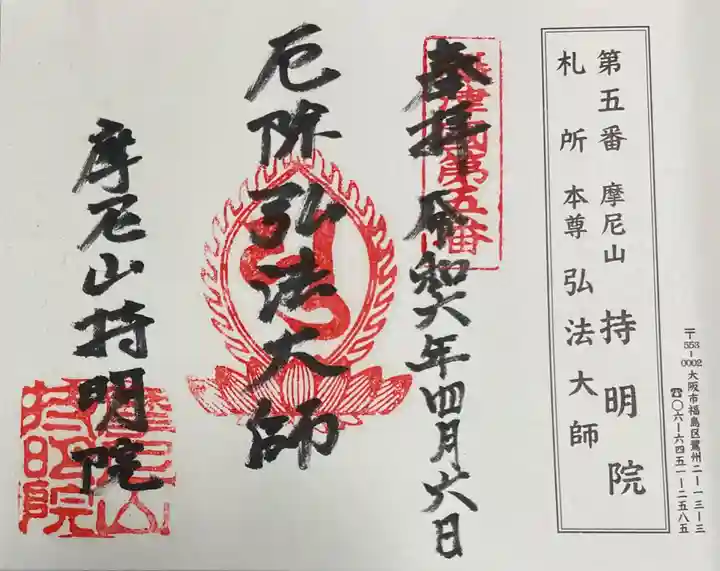 第五番 摩尼山 持明院
札所 本尊 弘法大師
〒553-0002 大阪市福島区鷺州二ー一三ー三
☎〇六ー六四五一ー二五八五
奉拝 令和六年四月六日
摂津国第五番
厄除弘法大師
摩尼山持明院
摩尼山
持明院